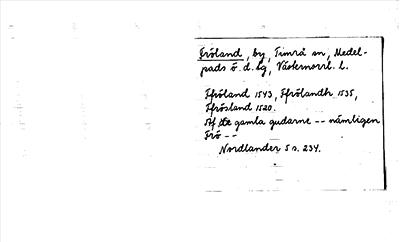 Fröland, by, Timrå sn, Medel-
pads ö. d. lg, Västernorrl. l.
Ffröland 1543, Ffrölandh 1535,
Ffrösland 1520.
Af de gamla gudarne -- nämligen
Frö --
Nordlander s s. 234.